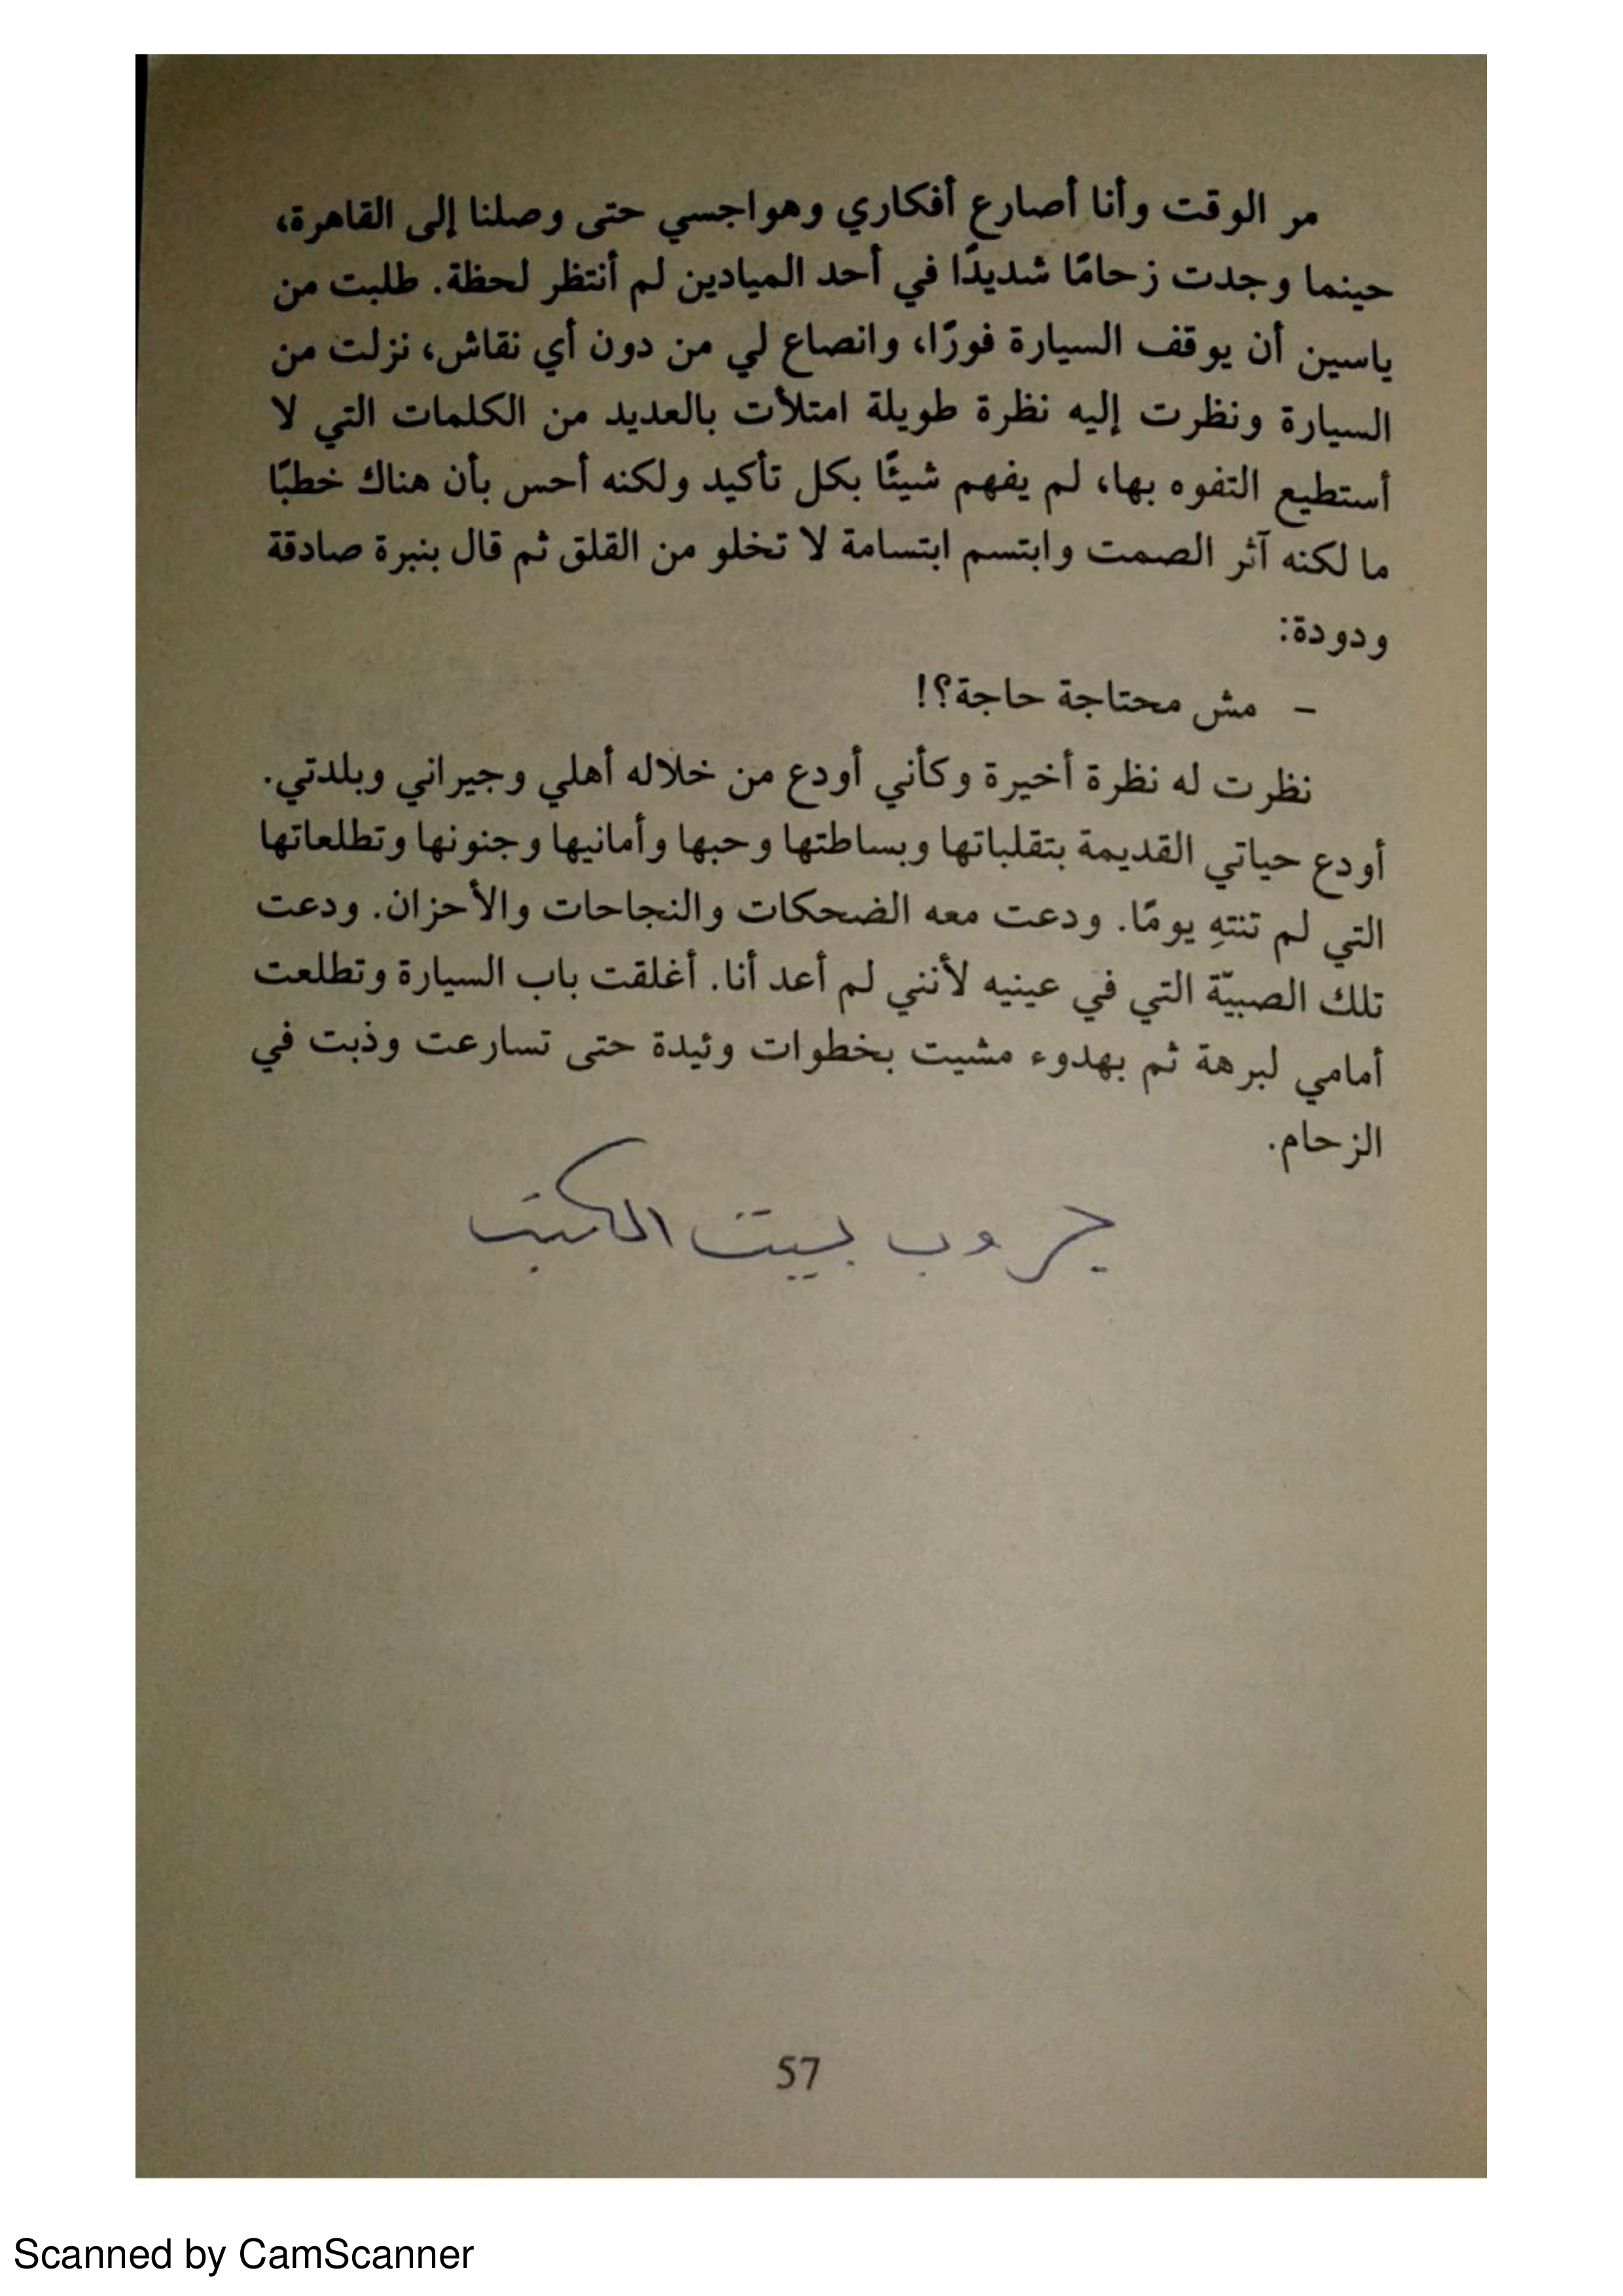 مر الوقت وأنا أصارع أفكاري وهواجسي حتى وصلنا إلى القاهرة،
حينما وجدت زحامًا شديدًا في أحد الميادين لم أنتظر لحظة. طلبت من
ياسين أن يوقف السيارة فورًا، وانصاع لي من دون أي نقاش، نزلت من
السيارة ونظرت إليه نظرة طويلة امتلأت بالعديد من الكلمات التي لا
أستطيع التفوه بها، لم يفهم شيئًا بكل تأكيد ولكنه أحس بأن هناك خطبًا
ما لكنه آثر الصمت وابتسم ابتسامة لا تخلو من القلق ثم قال بنبرة صادقة
ودودة:
– مش محتاجة حاجة؟!
نظرت له نظرة أخيرة وكأني أودع من خلاله أهلي وجيراني وبلدتي.
أودع حياتي القديمة بتقلباتها وبساطتها وحبها وأمانيها وجنونها وتطلعاتها
التي لم تنتهِ يومًا. ودعت معه الضحكات والنجاحات والأحزان. ودعت
تلك الصبيّة التي في عينيه لأنني لم أعد أنا. أغلقت باب السيارة وتطلعت
أمامي لبرهة ثم بهدوء مشيت بخطوات وئيدة حتى تسارعت وذبت في
الزحام.
جروب بيت الكتب
57
Scanned by CamScanner